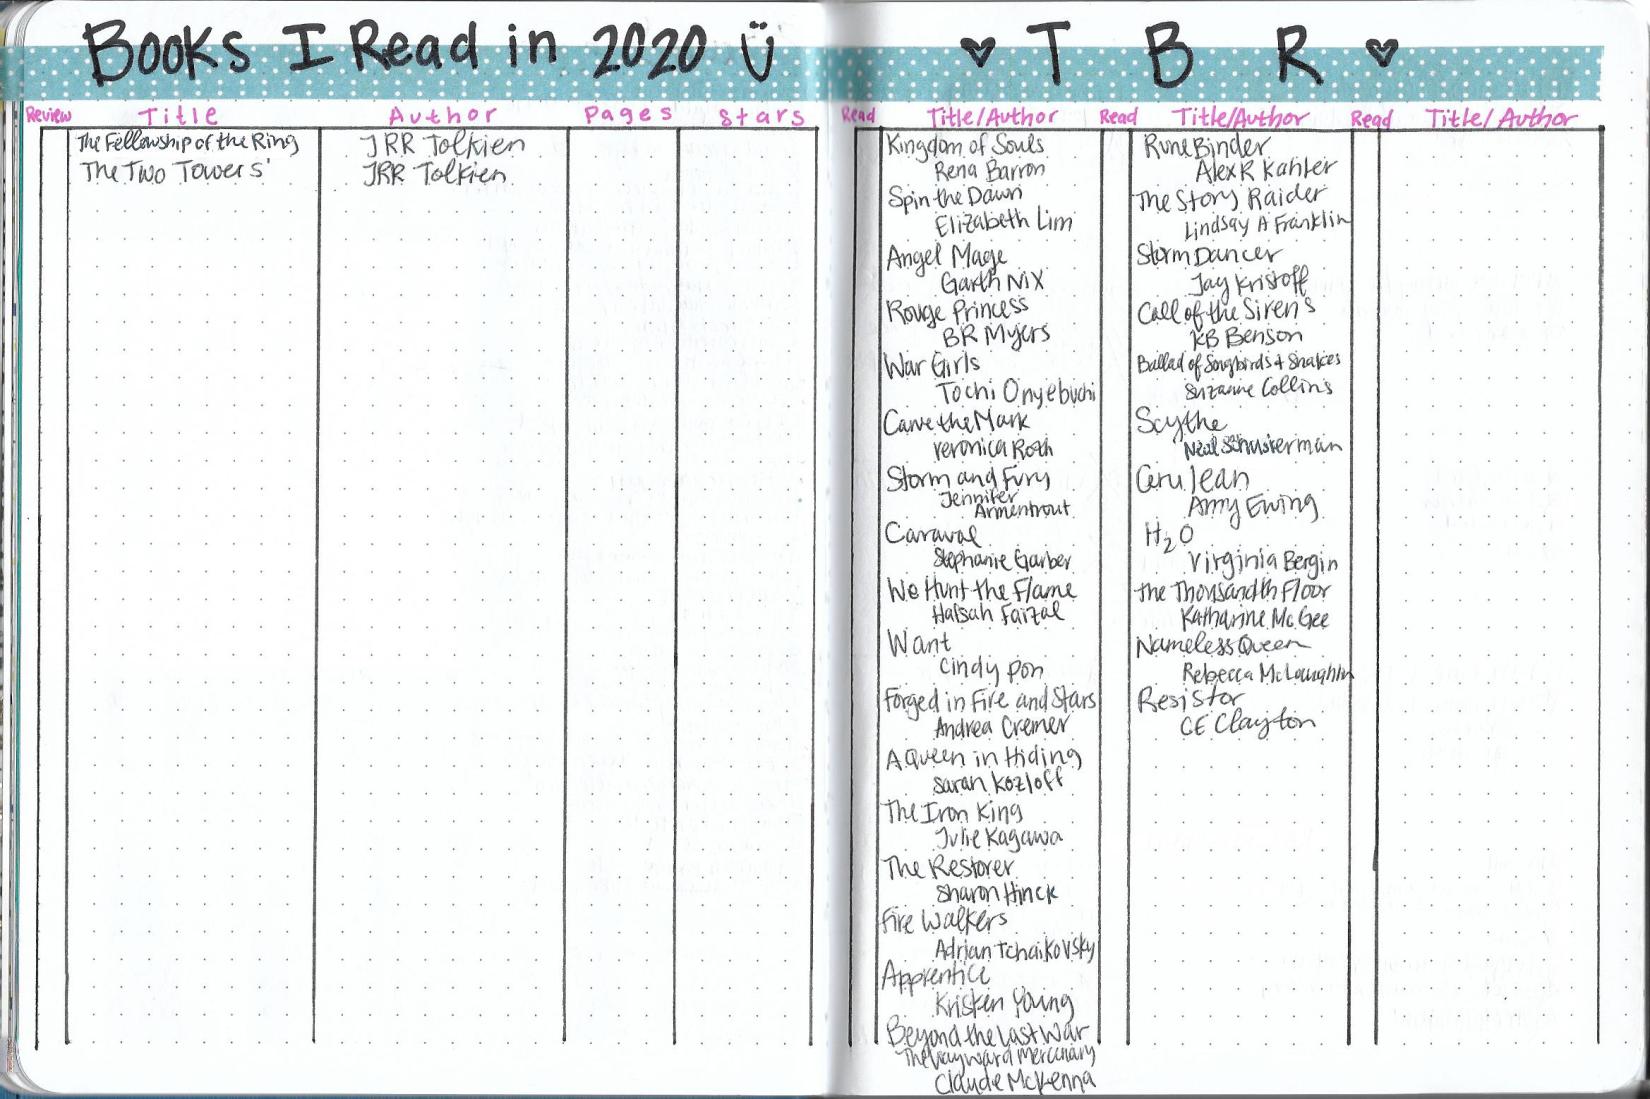 Books I Read in 2020 Ü
Review Title Author Pages Stars
The Fellowship of the Ring JRR Tolkien
The Two Towers JRR Tolkien
♥ T B R ♥
Read Title/Author Read Title/Author Read Title/Author
Kingdom of Souls
Rena Barron
Spin the Dawn
Elizabeth Lim
Angel Mage
Garth Nix
Rouge Princess
BR Myers
War Girls
Tochi Onyebuchi
Carve the Mark
Veronica Roth
Storm and Fury
Jennifer
Armentrout
Caraval
Stephanie Garber
We Hunt the Flame
Hafsah Faizal
Want
Cindy Pon
Forged in Fire and Stars
Andrea Cremer
A Queen in Hiding
Sarah Kozloff
The Iron King
Julie Kagawa
The Restorer
Sharon Hinck
Fire Walkers
Adrian Tchaikovsky
Apprentice
Kristen Young
Beyond the Last War
The Wayward Mercenary
Claude McKenna
Rune Binder
Alex R Kahler
The Story Raider
Lindsay A Franklin
Storm Dancer
Jay Kristoff
Call of the Sirens
KB Benson
Ballad of Songbirds + Snakes
Suzanne Collins
Scythe
Neal Schusterman
Cerulean
Amy Ewing
H₂O
Virginia Bergin
The Thousandth Floor
Katharine McGee
Nameless Queen
Rebecca McLaughlin
Resistor
CE Clayton